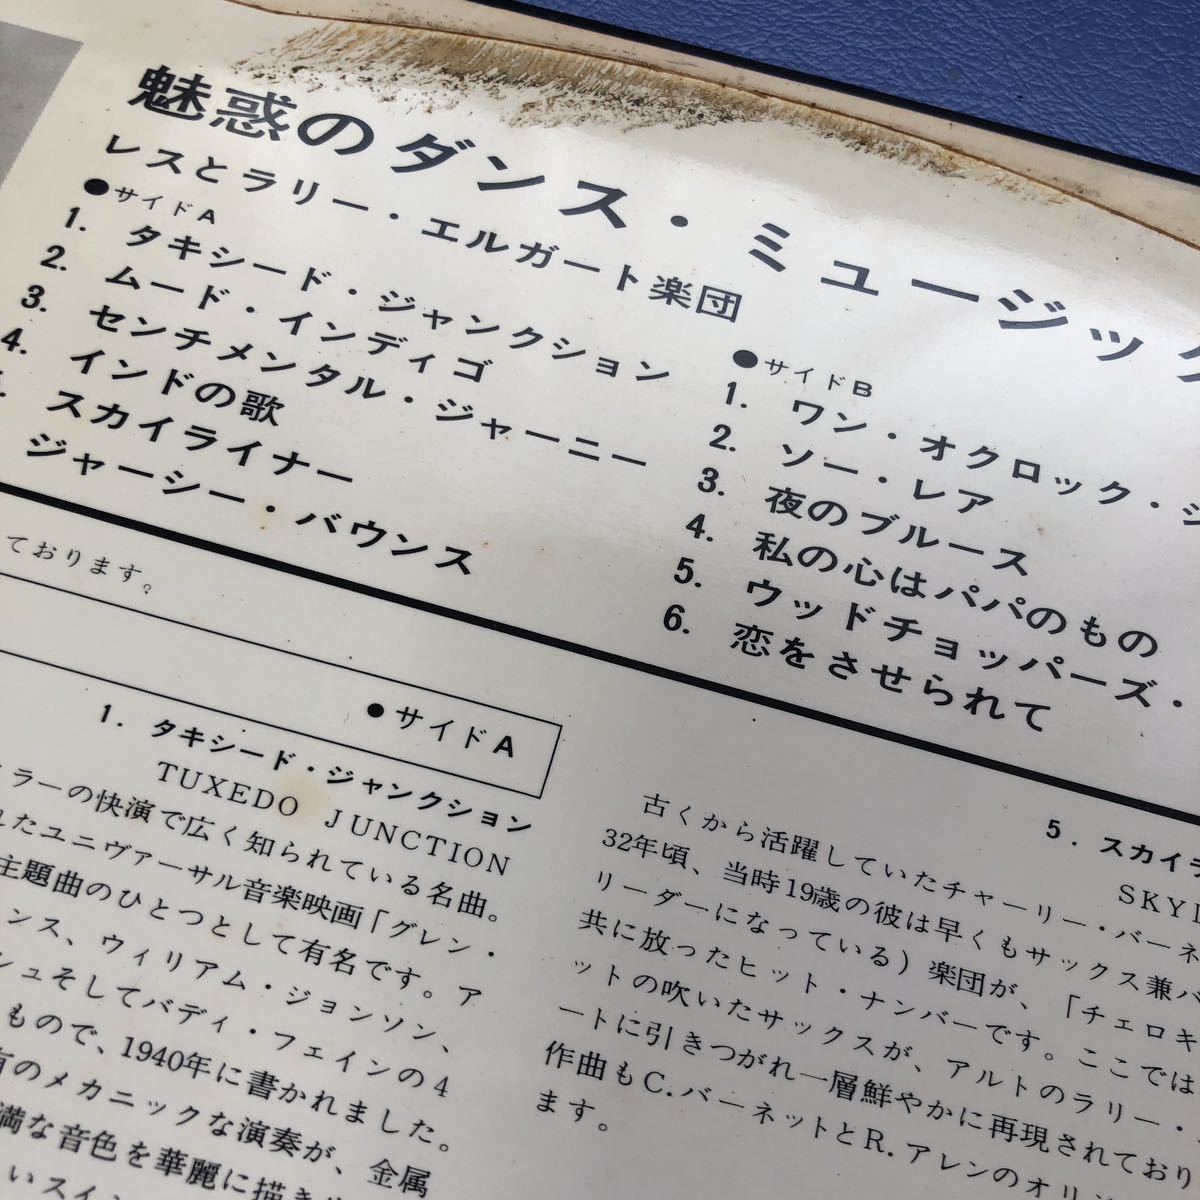 魅惑のダンス・ミュージック
レスとラリー・エルガート楽団
●サイドA
1. タキシード・ジャンクション
2. ムード・インディゴ
3. センチメンタル・ジャーニー
4. インドの歌
スカイライナー
ジャーシー・バウンス
●サイドB
1. ワン・オクロック・
2. ソー・レア
3. 夜のブルース
4. 私の心はパパのもの
5. ウッドチョッパーズ・
6. 恋をさせられて
ております。
●サイドA
1. タキシード・ジャンクション
TUXEDO JUNCTION
ラーの快演で広く知られている名曲。
れたユニヴァーサル音楽映画「グレン・
主題曲のひとつとして有名です。ア
ンス、ウィリアム・ジョンソン、
シュそしてバディ・フェインの4
もので、1940年に書かれました。
有のメカニックな演奏が、金属
満な音色を華麗に描き
いスイン
5. スカイラ
SKYL
古くから活躍していたチャーリー・バーネ
32年頃、当時19歳の彼は早くもサックス兼バ
リーダーになっている）楽団が、「チェロキ
共に放ったヒット・ナンバーです。ここでは
ットの吹いたサックスが、アルトのラリー・
ートに引きつがれ一層鮮やかに再現されており
作曲もC.バーネットとR.アレンのオリ
ます。